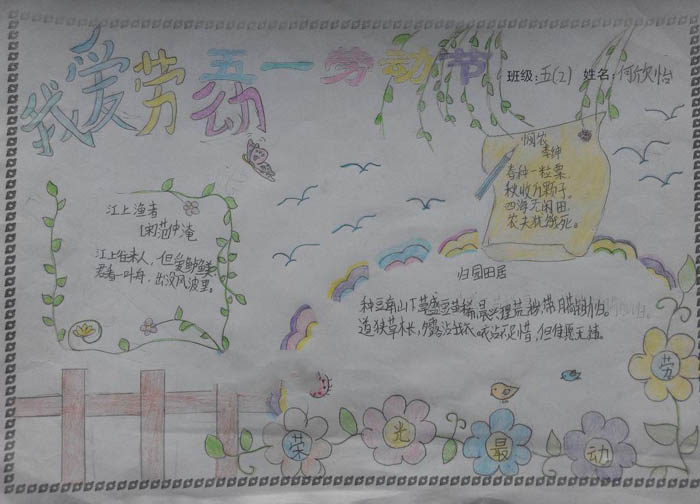 我爱劳动
五一劳动节
班级:五(2) 姓名:何欣怡
悯农
李绅
春种一粒粟,
秋收万颗子。
四海无闲田,
农夫犹饿死。
江上渔者
[宋]范仲淹
江上往来人,但爱鲈鱼美
君看一叶舟,出没风波里。
归园田居
种豆南山下,草盛豆苗稀,晨兴理荒秽,带月荷锄归。
道狭草木长,夕露沾我衣,衣沾不足惜,但使愿无违。
劳动最光荣